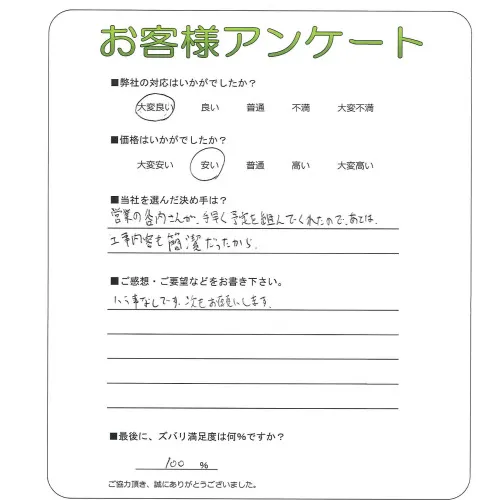 お客様アンケート
■弊社の対応はいかがでしたか？
大変良い 良い 普通 不満 大変不満
■価格はいかがでしたか？
大変安い 安い 普通 高い 大変高い
■当社を選んだ決め手は？
営業の さんが、手早く予定を組んでくれたので、あとは、
工事内容も簡潔だったから。
■ご感想・ご要望などをお書き下さい。
いう事なしです。次もお願いします。
■最後に、ズバリ満足度は何%ですか？
100 %
ご協力頂き、誠にありがとうございました。